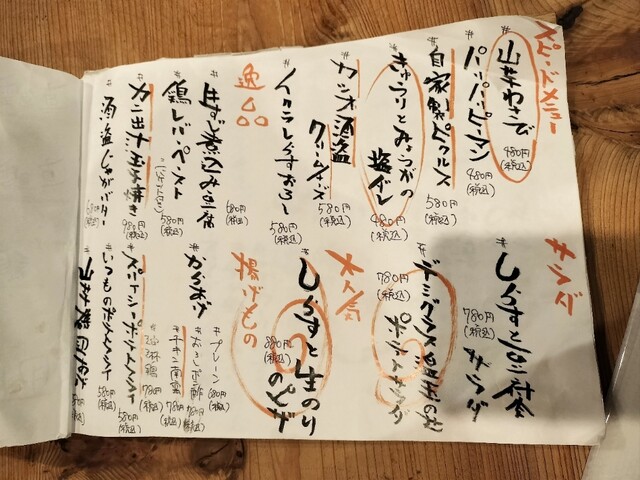 スピードメニュー
#山芋わさび
480円(税込)
#パリパリピーマン
480円(税込)
#自家製ピクルス
580円(税込)
#きゅうりとみょうがの
塩ダレ
480円(税込)
#カツオ酒盗
クリームチーズ
580円(税込)
#イクラしらすおろし
580円(税込)
逸品
#牛すじ煮込み豆腐
680円(税込)
#鶏レバーペースト
580円(税込)
#カニ出汁玉子焼き
980円(税込)
#酒盗じゃがバター
(税込)
サラダ
#しらすと豆腐
サラダ
780円(税込)
#デミグラス温玉のせ
ポテトサラダ
780円(税込)
大人気
#しらすと生のり
のピザ
880円(税込)
揚げもの
からあげ
#プレーン
680円(税込)
#おろしポン酢
780円(税込)
#チキン南蛮
780円(税込)
780円(税込)
#スパイシーポテトフライ
580円(税込)
#いつものポテトフライ
580円(税込)